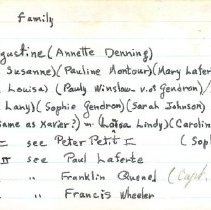 Family
gustine (Annette Denning)
Susanne) (Pauline Montour) (Mary Lafer
Louisa) (Pauly Winslow v. of Gendron)
Lany) (Sophie Gendron) (Sarah Johnson)
ame as Xavier?) m. Loisa Lindy) (Carolin
I see Peter Petit I (Sop
II see Paul Laferte
" " Franklin Quened (Capt.
" " Francis Wheeler